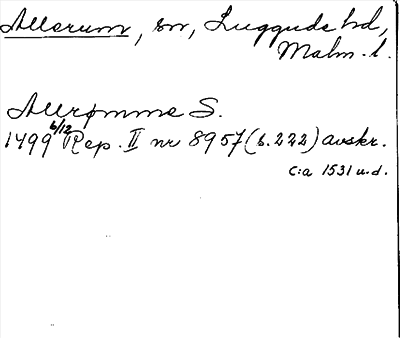 Allerum, sn, Luggude hd,
Malm. l.
Allrømme S.
1499 6/12 Rep. II nr 8957 (s. 222) avskr.
c:a 1531 u.d.